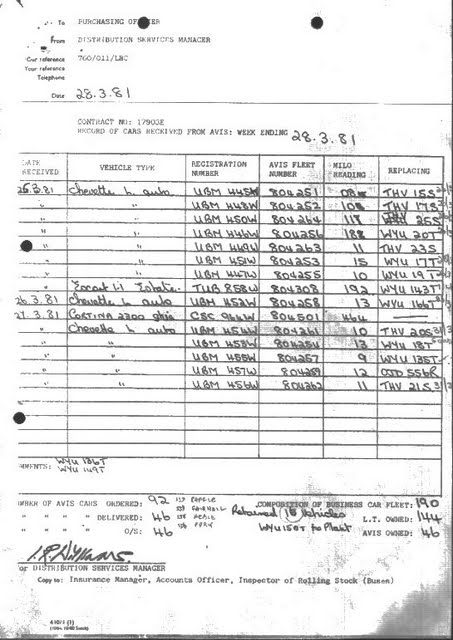 To PURCHASING OFFICER
From DISTRIBUTION SERVICES MANAGER
Our reference 760/011/LBC
Your reference
Telephone
Date 28.3.81
CONTRACT NO: 17903E
RECORD OF CARS RECEIVED FROM AVIS: WEEK ENDING 28.3.81
DATE RECEIVED VEHICLE TYPE REGISTRATION NUMBER AVIS FLEET NUMBER MILO READING REPLACING
25.3.81 Chevette L auto UBM 804251 THV 155S
" " UBM 448W 804252 THV 17S
" " UBM 450W 804264 25S
" " UBM 446W 804256 188 WYU 20T
" " UBM 449W 804263 11 THV 23S
" " UBM 451W 804253 15 WYU 17T
" " UBM 447W 804255 10 WYU 19T
" Escort 1.1 Estate TUB 858W 804308 192 WYU 143T
26.3.81 Chevette L auto UBM 452W 804258 13 WYU 166T
27.3.81 CORTINA 2300 Ghia CBC 964W 804501 464
" Chevette L auto UBM 454W 804261 10 THV 20S
" " UBM 453W 804254 13 WYU 18T
" " UBM 455W 804257 9 WYU 135T
" " UBM 457W 804259 12 556R
" " UBM 456W 804262 11 THV 21S
COMMENTS: WYU 136T
WYU 149T
NUMBER OF AVIS CARS ORDERED: 92 COMPOSITION OF BUSINESS CAR FLEET: 190
" " " " DELIVERED: 46 Returned 15 Vehicles L.T. OWNED: 144
" " " " O/S: 46 WYU 150T to Plant AVIS OWNED: 46
for DISTRIBUTION SERVICES MANAGER
Copy to: Insurance Manager, Accounts Officer, Inspector of Rolling Stock (Buses)